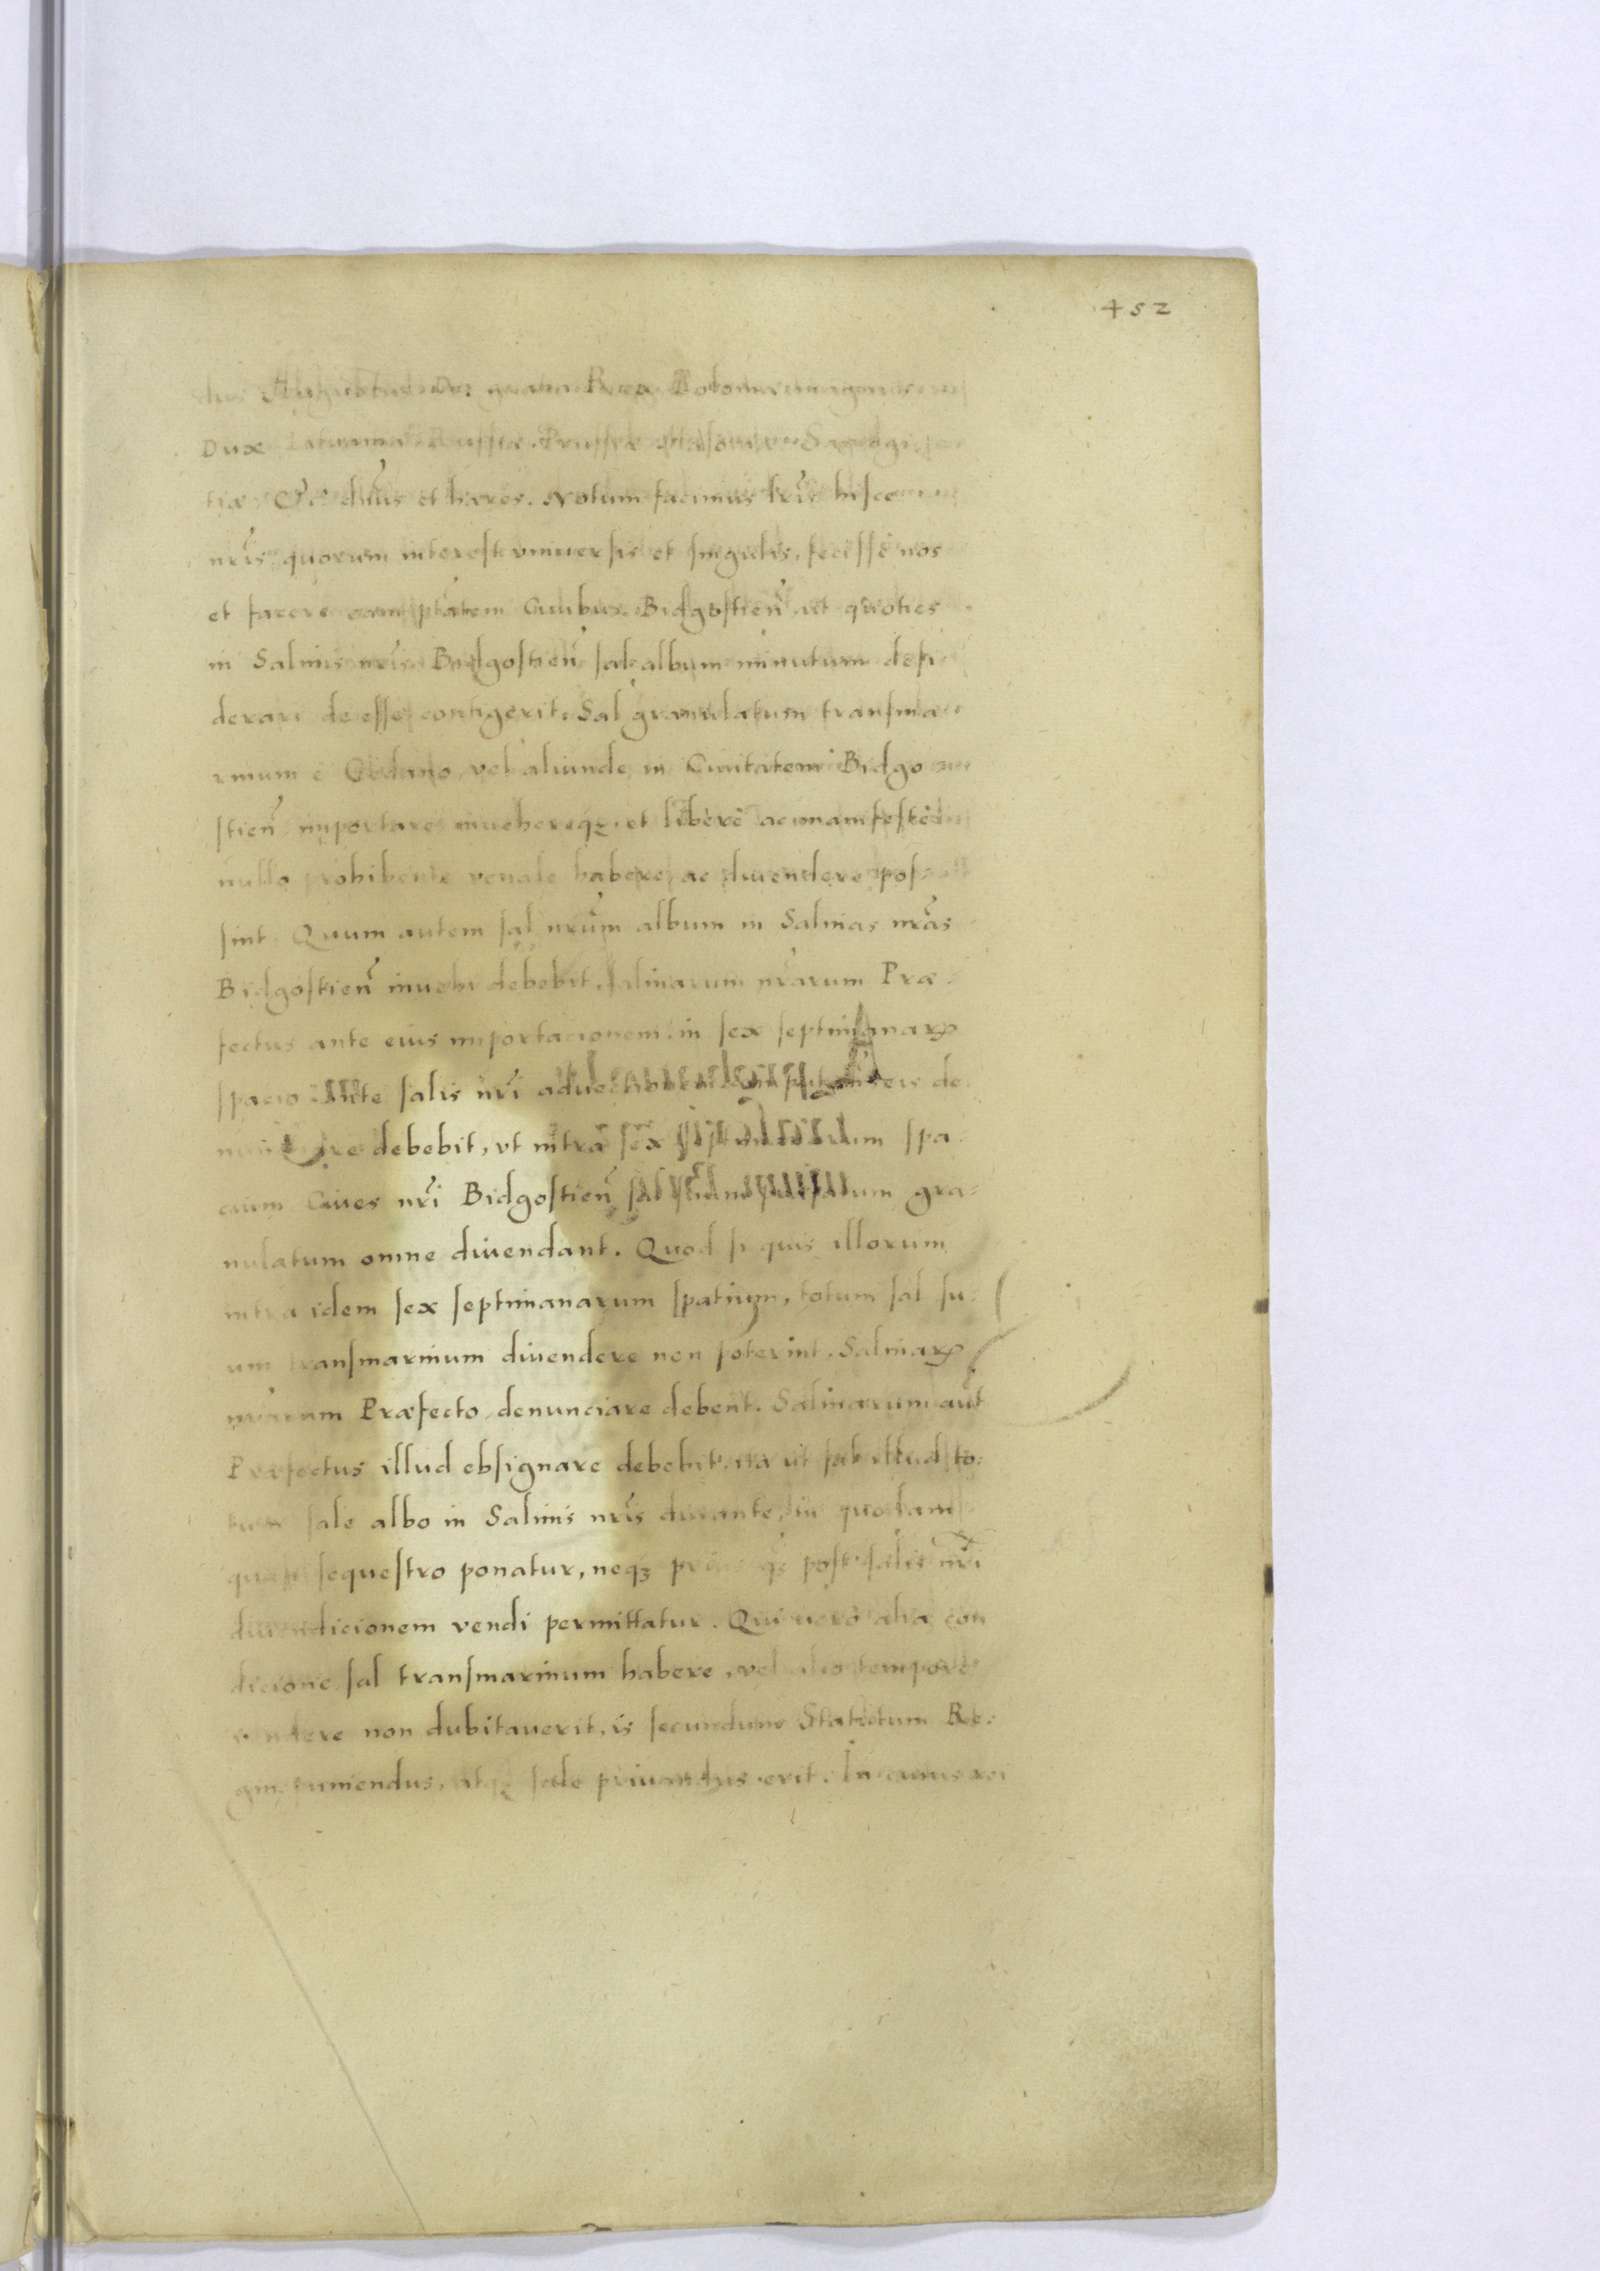 452
dus Augustus Dei gratia Rex Poloniæ magnus
Dux Lituaniæ Russiæ Prussiæ Masouiæ Samogi
tiæ &c dn̄us et hæres. Notum facimus lr̄is hisce
nr̄is quorum interest vniuersis et singulis, fecisse nos
et facere eam ptātem Ciuibus Bidgostien̄ ut quoties
in Salinis nr̄is Bidgostien̄ sal album minutum desi
derari de esse contigerit, Sal granulatum transma
rinum è Gedano vel aliunde in Ciuitatem Bidgo
stien̄ importare inuehereqȝ, et liberè ac manifestè
nullo prohibente venale habere, ac diuendere pos
sint. Quum autem sal nr̄um album in Salinas nr̄as
Bidgostien̄ inuehi debebit, salinarum nr̄arum Præ
fectus ante eius importacionem in sex septimanaꝝ
spacio ante salis nr̄i aduectionem eis de
debebit, vt intra sex spa
cium Ciues nr̄i Bidgostien̄ sal suum gra=
nulatum omne diuendant. Quod si quis illorum
intra idem sex septimanarum spatium, totum sal su=
um transmarinum diuendere non poterint, Salinaꝝ
nr̄arum Præfecto denunciare debent. Salinarum aūt
Præfectus illud obsignare debebit, ita ut sal illud to=
tum sale albo in Salinis nr̄is durante, in quodam
quasi sequestro ponatur, neqȝ prius qȝ post salis nr̄i
diuendicionem vendi permittatur. Qui uerò alia con
dicione sal transmarinum habere, vel alio tempore
vendere non dubitauerit, is secundum Statutum Re=
gni puniendus, atqȝ sale priuandus erit. In cuius rei